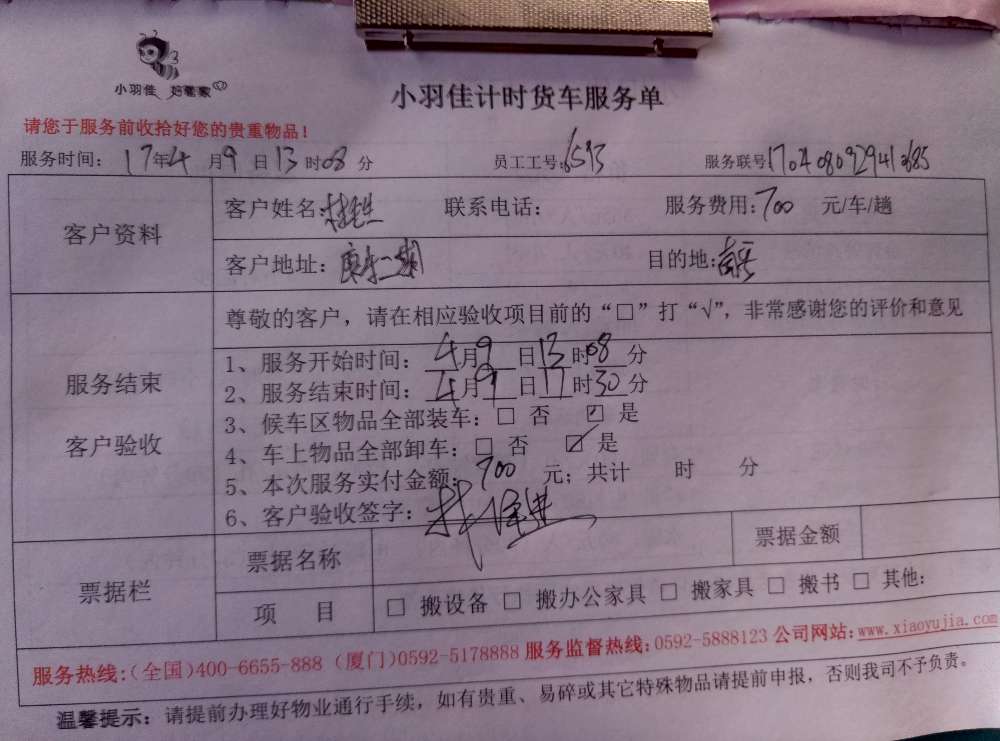 小羽佳 好管家
小羽佳计时货车服务单
请您于服务前收拾好您的贵重物品！
服务时间： 17年4月9日13时08分 员工工号：6593 服务联号
客户资料
客户姓名： 联系电话： 服务费用：700 元/车/趟
客户地址： 目的地：
服务结束
客户验收
尊敬的客户，请在相应验收项目前的“□”打“√”，非常感谢您的评价和意见
1、服务开始时间：4月9日13时08分
2、服务结束时间：4月9日17时30分
3、候车区物品全部装车：□ 否 ☑ 是
4、车上物品全部卸车：□ 否 ☑ 是
5、本次服务实付金额：700 元；共计 时 分
6、客户验收签字：
票据栏
票据名称 票据金额
项 目 □ 搬设备 □ 搬办公家具 □ 搬家具 □ 搬书 □ 其他：
服务热线：(全国)400-6655-888 (厦门)0592-5178888 服务监督热线：0592-5888123 公司网站：www.xiaoyujia.com
温馨提示：请提前办理好物业通行手续，如有贵重、易碎或其它特殊物品请提前申报，否则我司不予负责。